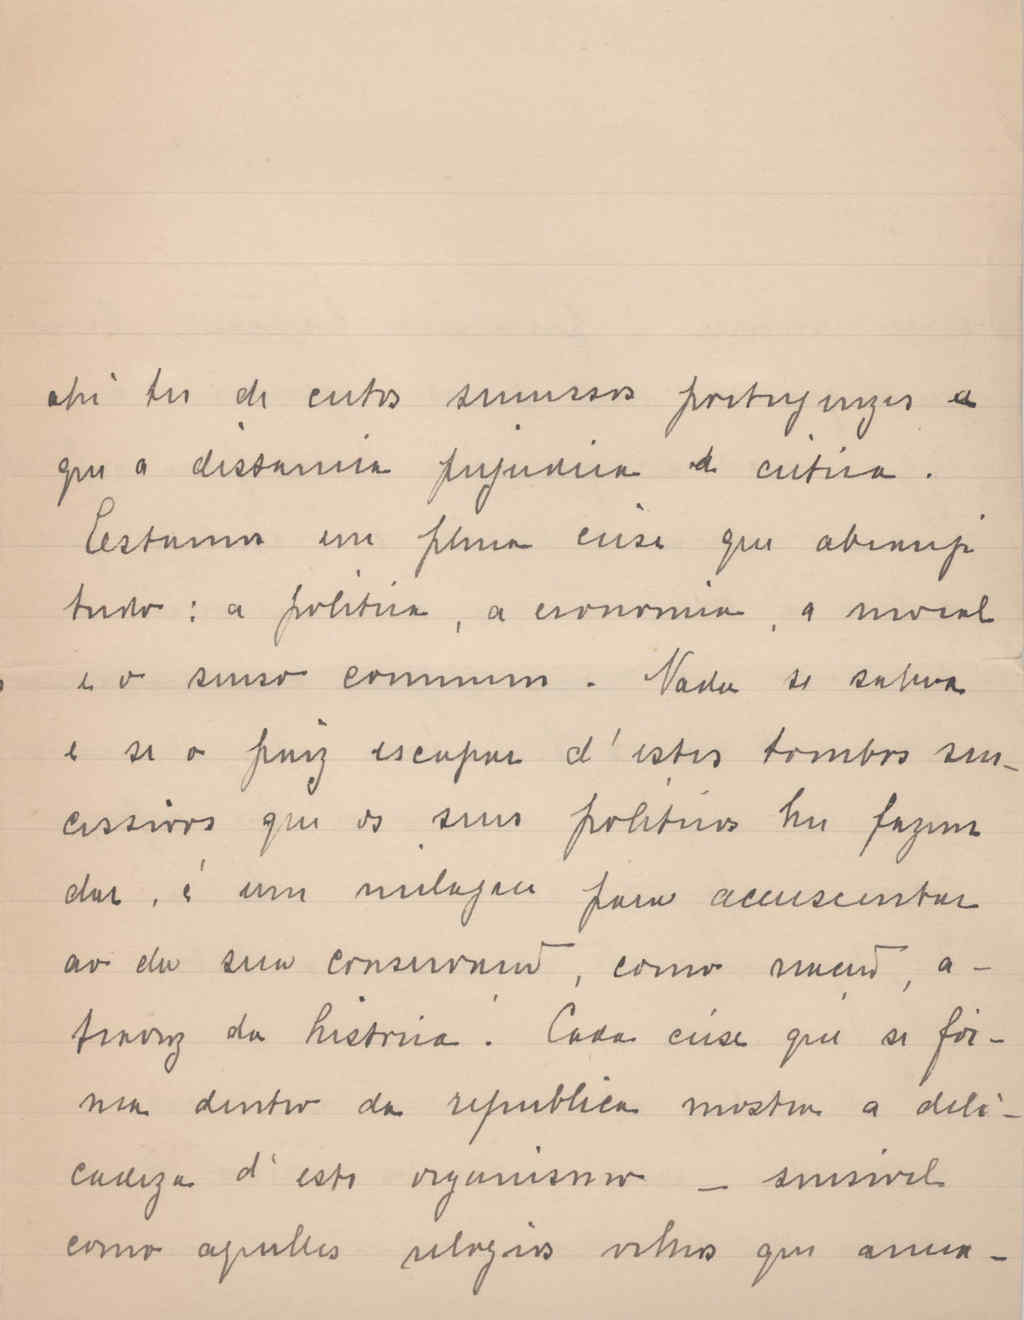 ahi ter de certos successos portuguezes e
que a distancia prejudica a critica.
Estamos em plena crise que abrange
tudo: a politica, a economia, a moral
e o senso commum. Nada se salva
e se o paiz escapar d'estes tombos suc-
cessivos que os seus politicos lhe fazem
dar, é um milagre para accrescentar
ao da sua conservação, como nação, a-
travez da historia. Cada crise que se fór-
ma dentro da republica mostra a deli-
cadeza d'este organismo — sensivel
como aquelles relogios velhos que